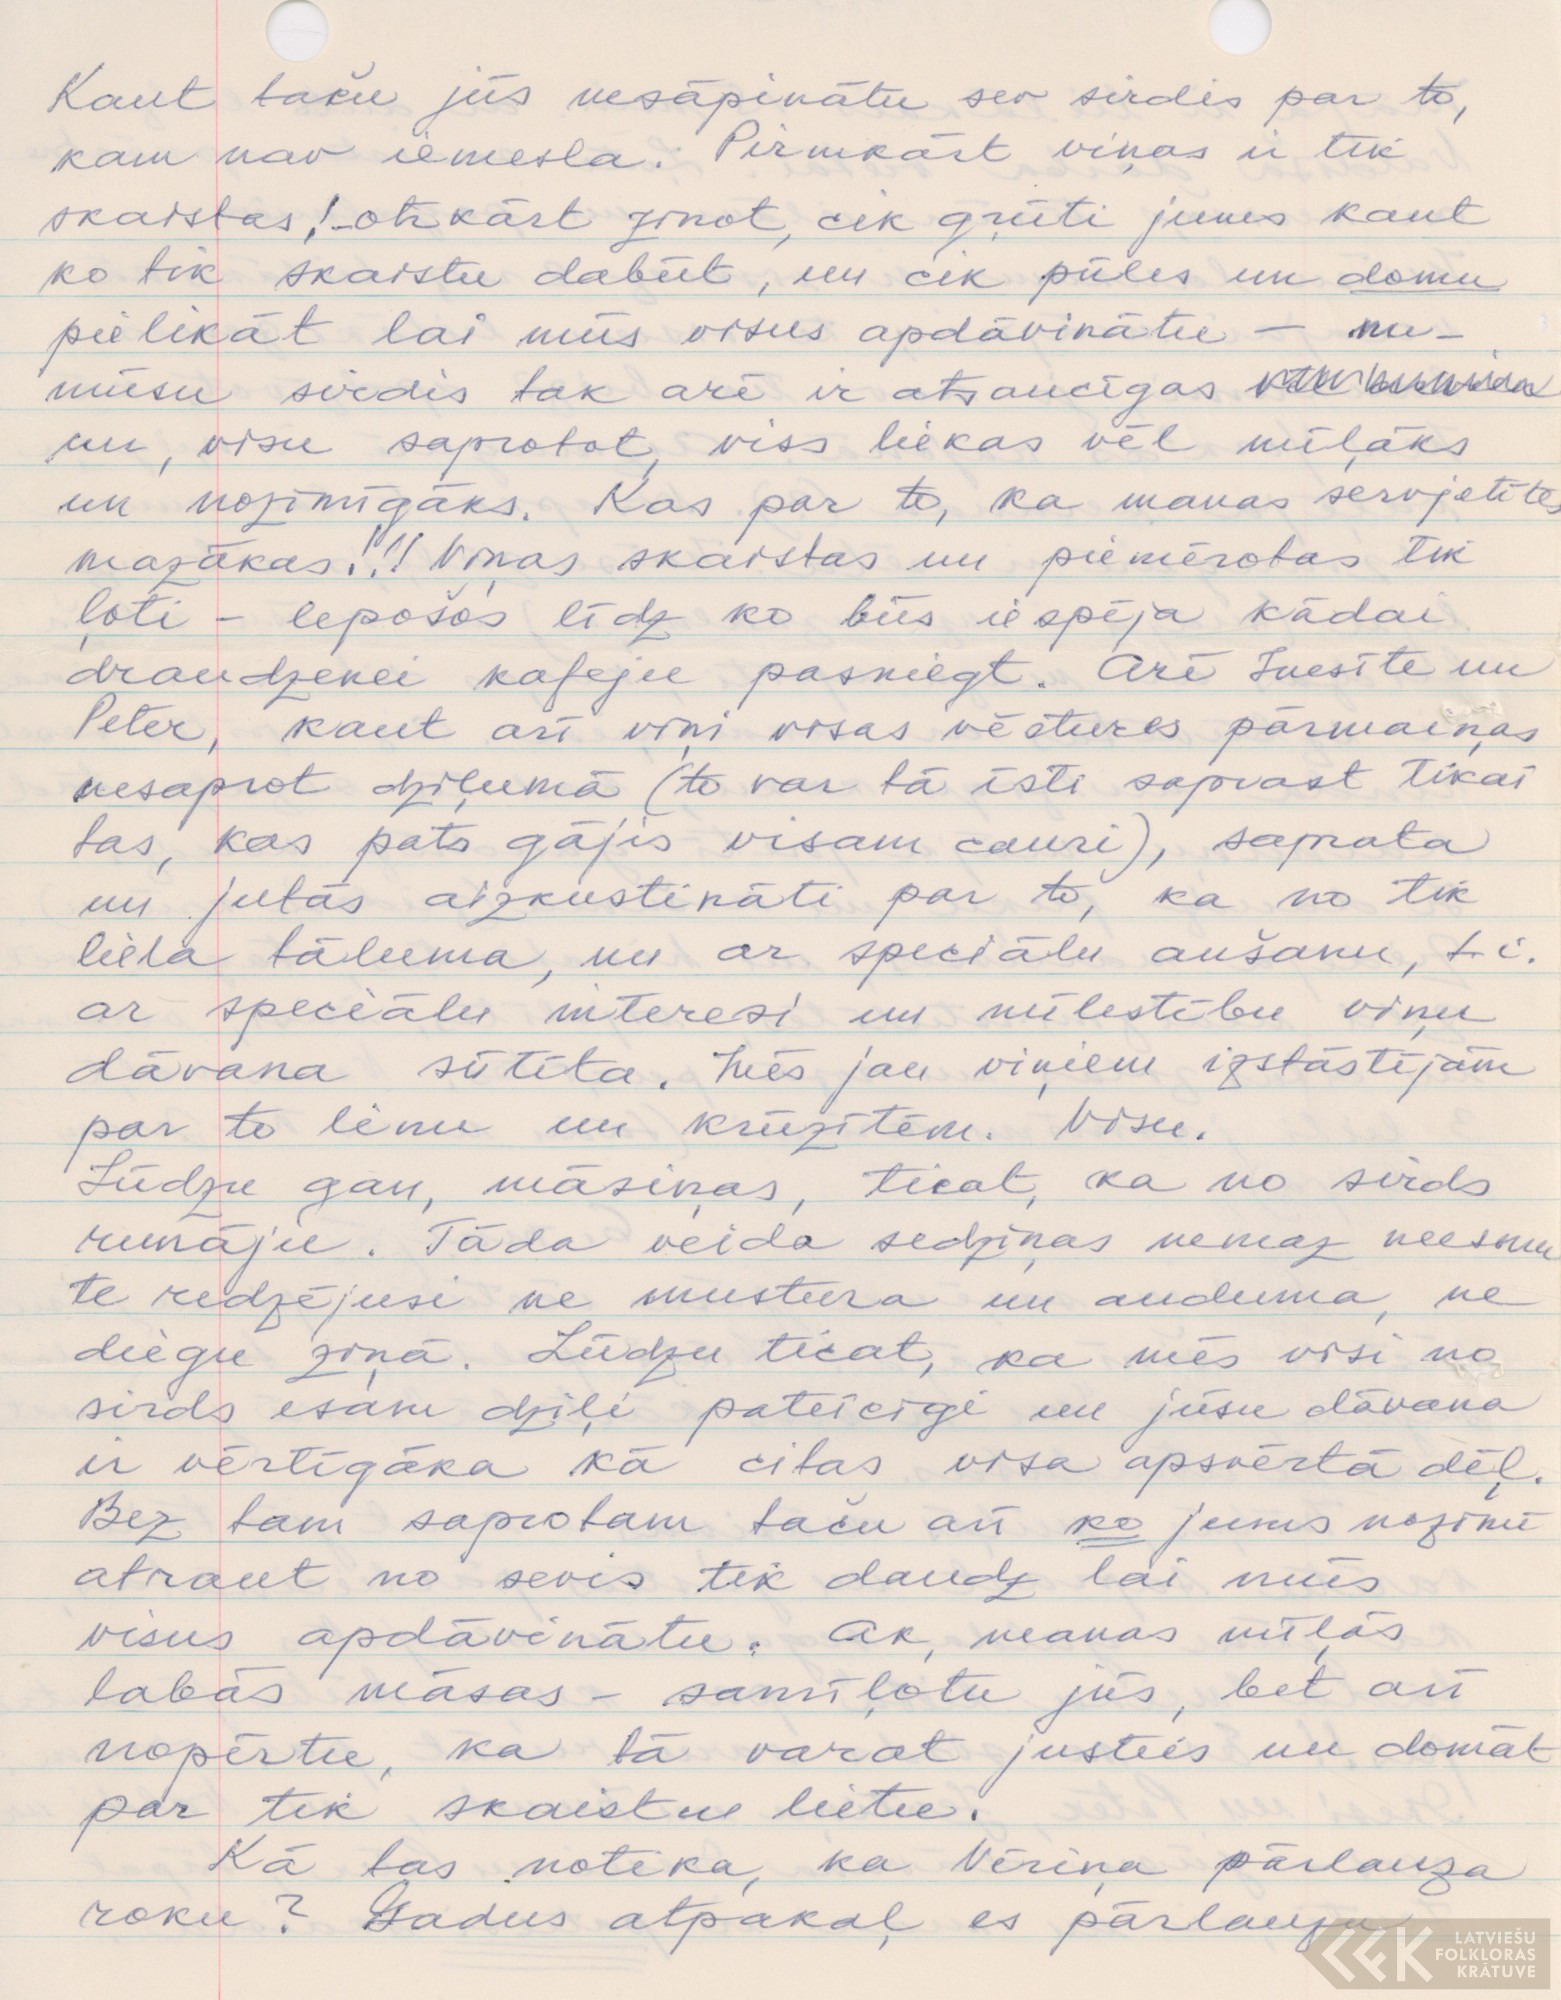 Kaut taču jūs nesāpinātu sev sirdis par to,
kam nav iemesla. Pirmkārt viņas ir tik
skaistas! – otrkārt zinot, cik grūti jums kaut
ko tik skaistu dabūt, un cik pūles un domu
pielikāt lai mūs visus apdāvinātu – nu –
mūsu sirdis tak arī ir atsaucīgas
un, visu saprotot, viss liekas vēl mīļāks
un nozīmīgāks. Kas par to, ka manas servjetītes
mazākas!!! Viņas skaistas un piemērotas tik
ļoti – lepošos līdz ko būs iespēja kādai
draudzenei kafeju pasniegt. Arī Inesīte un
Peter, kaut arī viņi visas vēstures pārmaiņas
nesaprot dziļumā (to var tā īsti saprast tikai
tas, kas pats gājis visam cauri), saprata
un jutās aizkustināti par to, ka no tik
liela tāluma, un ar speciālu aušanu, t.i.
ar speciālu interesi un mīlestību viņu
dāvana sūtīta. Mēs jau viņiem izstāstījām
par to linu un krūzītēm. Visu.
Lūdzu gan, māsiņas, ticat, ka no sirds
runāju. Tāda veida sedziņas nemaz neesmu
te redzējusi ne mustura un auduma, ne
diegu ziņā. Lūdzu ticat, ka mēs visi no
sirds esam dziļi pateicīgi un jūsu dāvana
ir vērtīgāka kā citas visa apsvērtā dēļ.
Bez tam saprotam taču arī ko jums nozīmē
atraut no sevis tik daudz lai mūs
visus apdāvinātu. Ak, manas mīļās
labās māsas – samīļotu jūs, bet arī
nopērtu, ka tā varat justies un domāt
par tik skaistu lietu.
Kā tas notika, ka Vēriņa pārlauza
roku? Gadus atpakaļ es pārlauzu
LATVIEŠU
FOLKLORAS
KRĀTUVE